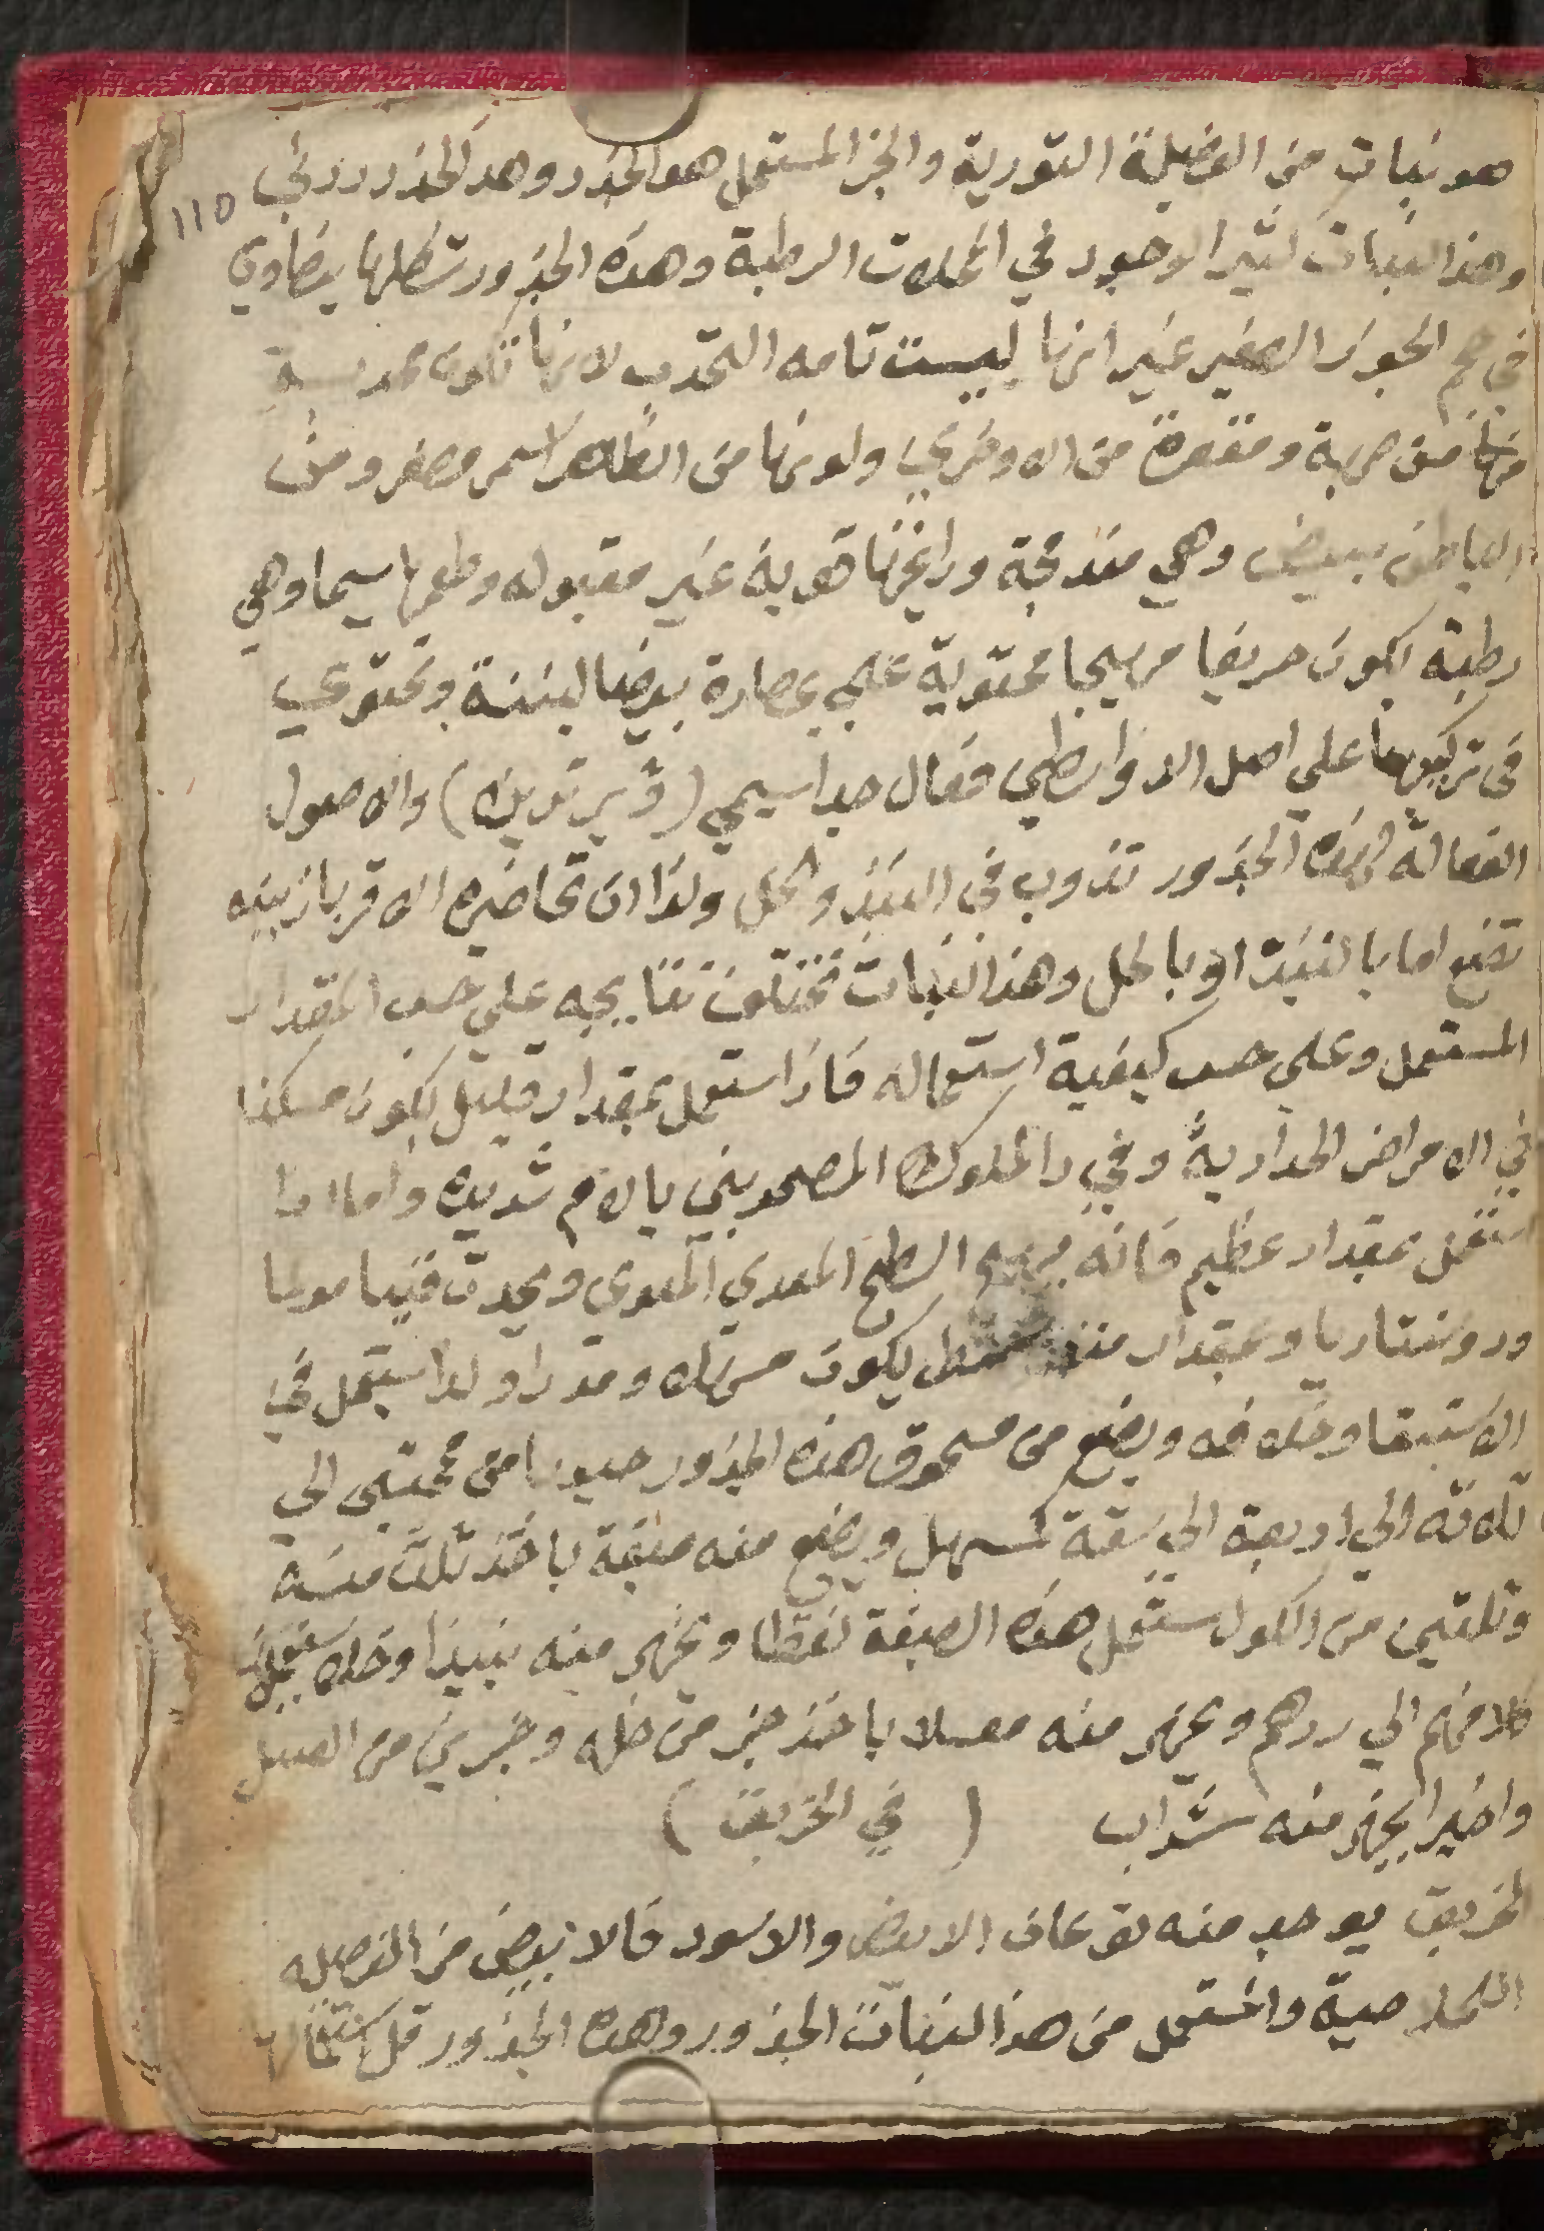 هو نبات من الفصيلة التورية والجز المستعمل هو الجذر وهد الجذر درني
١١٥
وهذا النبات كثير الوجود في المحلات الرطبة وهذه الجذور شكلها بيضاوي
في حجم الجوز الصغير غير انها ليست تامه التحدب لانها تكون محدبة
منها من جهة ومقعرة من الاوخري ولونها من الظاهر اسمر مصفر ومن
الباطن ابيض وهي مندمجة ورايحتها قوية غير مقبوله وطعمها سيما وهي
رطبة يكون حريفا مهيجا محتوية علي عصارة بيضا لبنية وتحتوي
في تركيبها علي اصل الدوايطي فعال جدا سيمي (فيرترين) والاصول
الفعالة لهذه الجذور تذوب في النبيذ والخل ولذا ان تحاضيره الاقرباذينيه
تصنع اما بالنبيذ او بالخل وهذا النبات تختلف نتايجه علي حسب المقدار
المستعمل وعلي حسب كيفية استعماله فاذا استعمل بمقدار قليل يكون مسكنا
في الامراض الحدارية وفي دا الملوك المصحوبين بالام شديده واما اذا
استعمل بمقدار عظيم فانه يهيج السطح المعدي المعوي ويحدث قيئا مولما
ودوسنتاريا وبمقدار يكون مسهلا ومدرا ولذا يستعمل في
الاستسقا وخلافه ويصنع من مسحوق هذه الجذور حبوبا من قمحتين الي
ثلاثة الي اربعة الي ستة كمسهل ويصنع منه صبغة باخذ ثلث منه
وثلثين من الكول تستعمل هذه الصبغة نقطا ويجهز منه نبيذا وخلا يستعمل
كلا منهم الي درهم ويجهز منه معسلا باخذ جز من خله وجزين من العسل
واخيرا يجهز منه شراب ( في الخربق )
الخربق يوجد منه نوعان الابيض والاسود فالابيض من الفصيله
الكلاصية والمستعمل من هذا النبات الجذور وهذه الجذور قل استعمالها